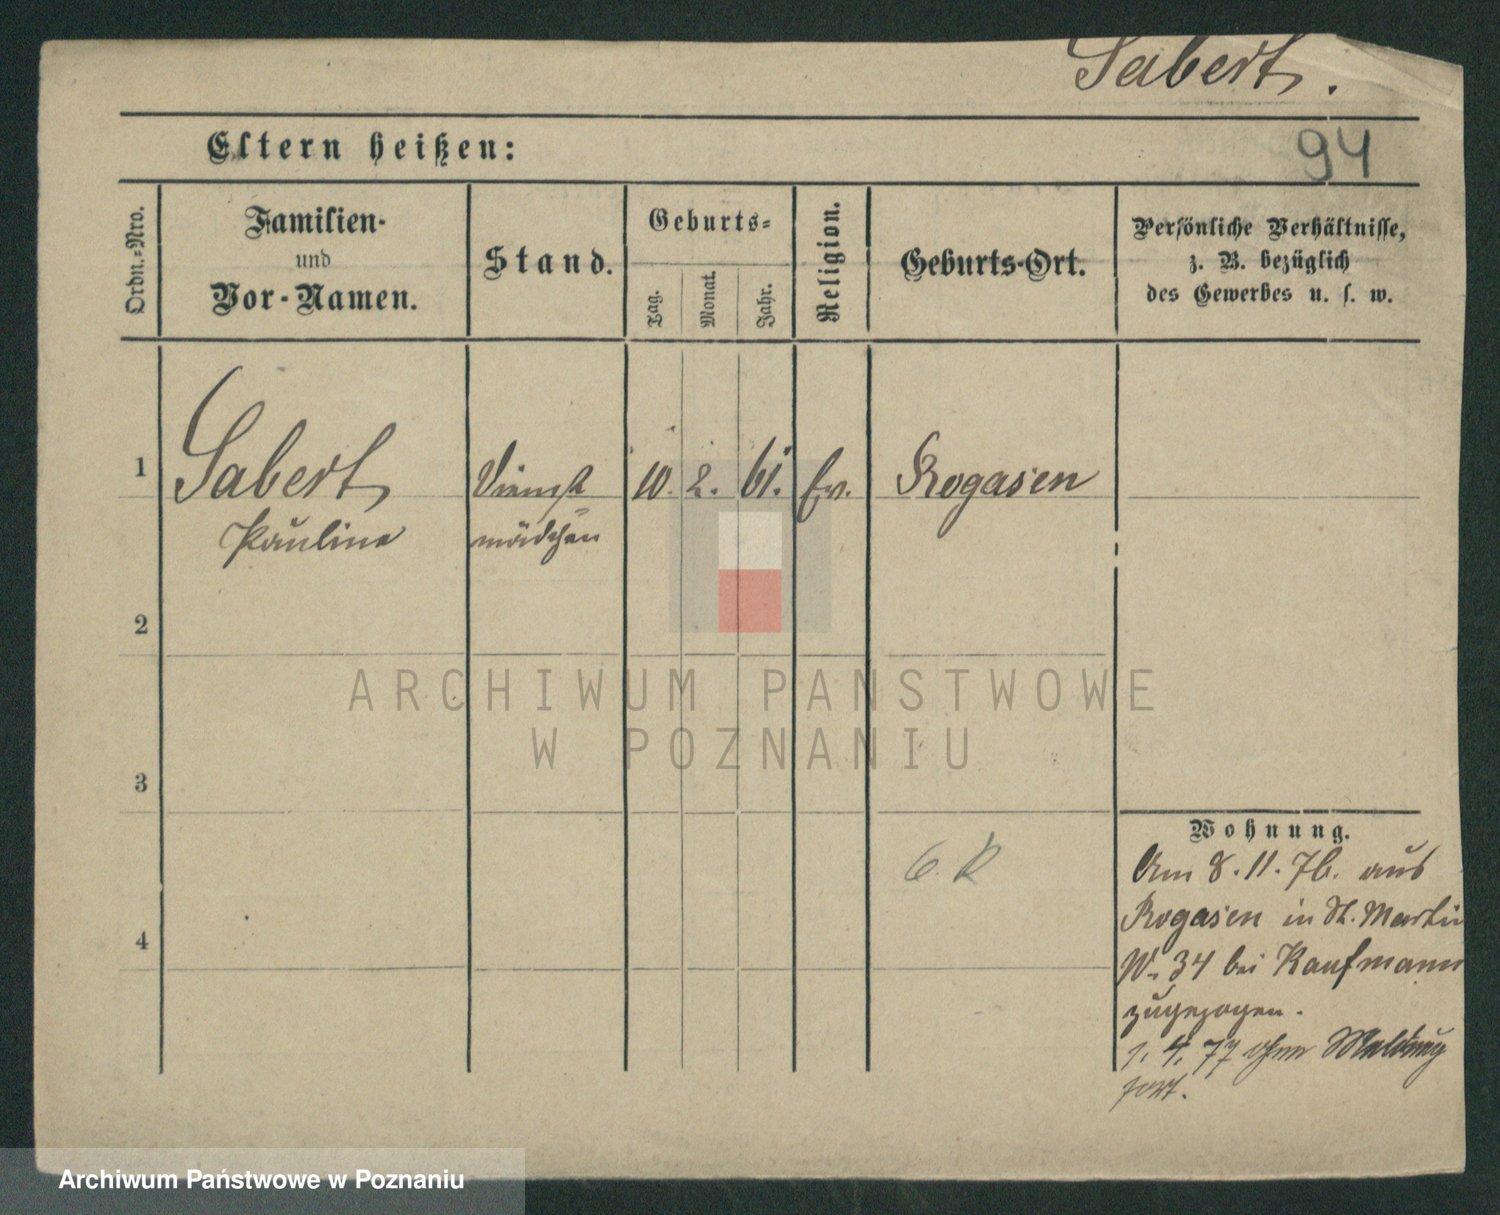 Sabert.
Eltern heißen:
94
Ordn.=Nro.
Familien-
und
Vor-Namen.
Stand.
Geburts=
Tag.
Monat.
Jahr.
Religion.
Geburts-Ort.
Persönliche Verhältnisse,
z. B. bezüglich
des Gewerbes u. s. w.
1
Sabert
Dienst
10. 2. 61. Ev. Rogasen
Pauline
mädchen
2
ARCHIWUM PAŃSTWOWE
W POZNANIU
3
Wohnung.
6. R
Am 8. 11. 76. aus
Rogasen in St. Martin
No 34 bei Kaufmann
zugezogen.
1. 4. 77 ohne Meldung
fort.
4
Archiwum Państwowe w Poznaniu